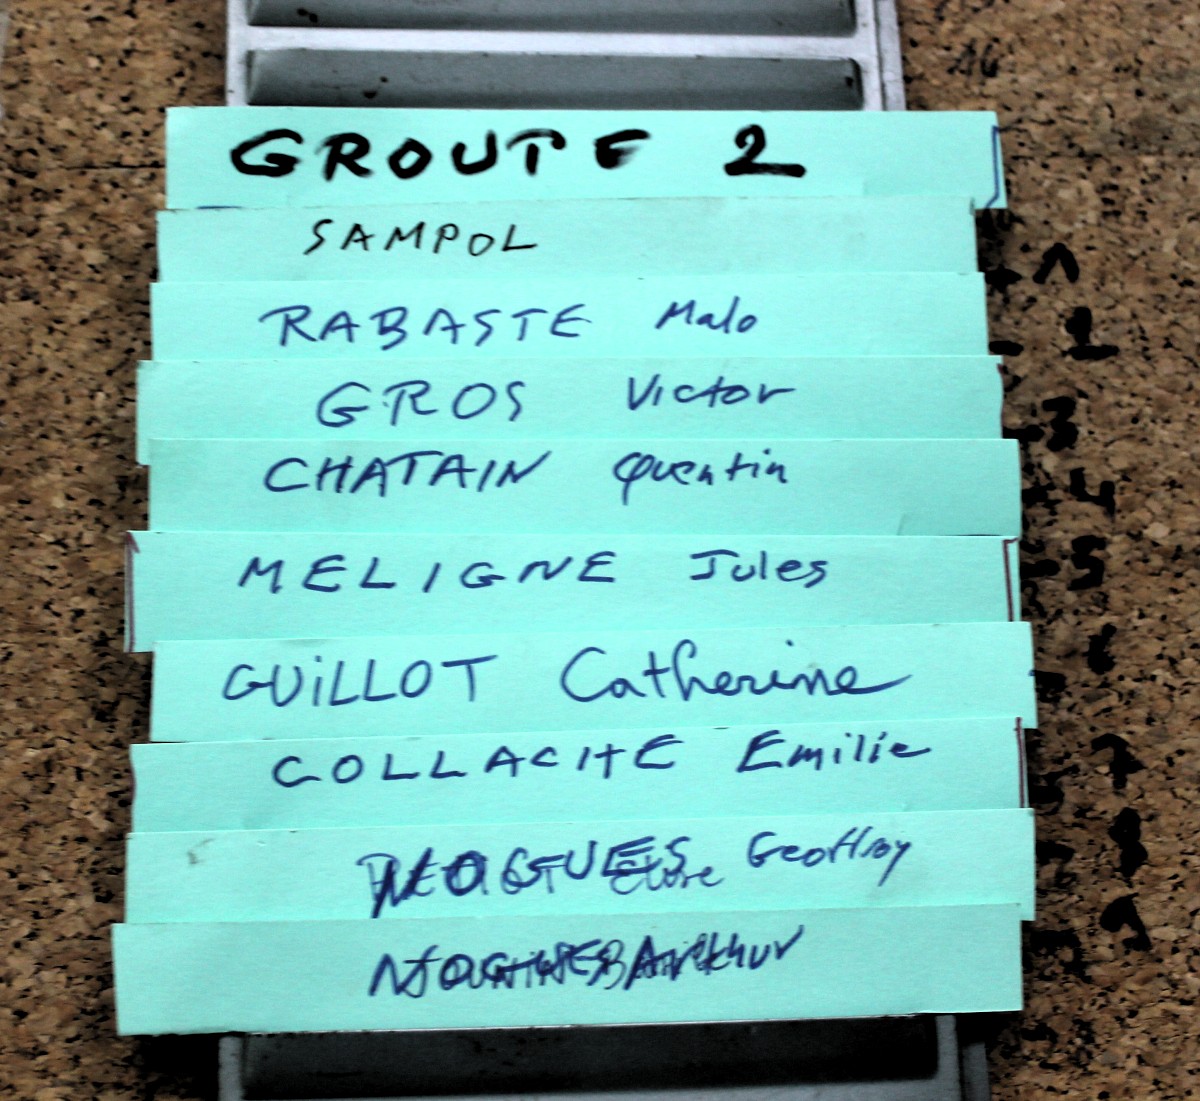 GROUPE 2
SAMPOL
1
RABASTE Malo
2
GROS Victor
3
CHATAIN Quentin
4
MELIGNE Jules
5
GUILLOT Catherine
6
COLLACHE Emilie
7
NOGUES Geoffroy
8
NOGUES Arthur
9